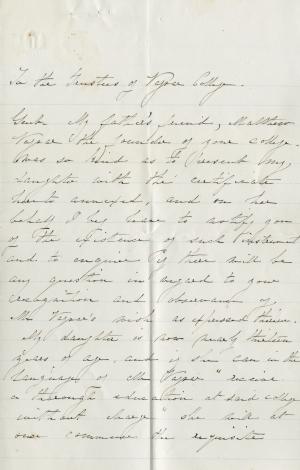 To the Trustees of Vassar College.
Gents. My father's friend, Matthew
Vassar the founder of your college
was so kind as to present my
daughter with the certificate
hereto annexed, and on her
behalf I beg leave to notify you
of the existence of such instrument
and to enquire if there will be
any question in regard to your
recognition and observance of
Mr Vassar's wish as expressed therein.
My daughter is now nearly thirteen
years of age, and if she can in the
language of Mr Vassar "receive
a thorough education at said college
without charge" she will at
once commence the requisite